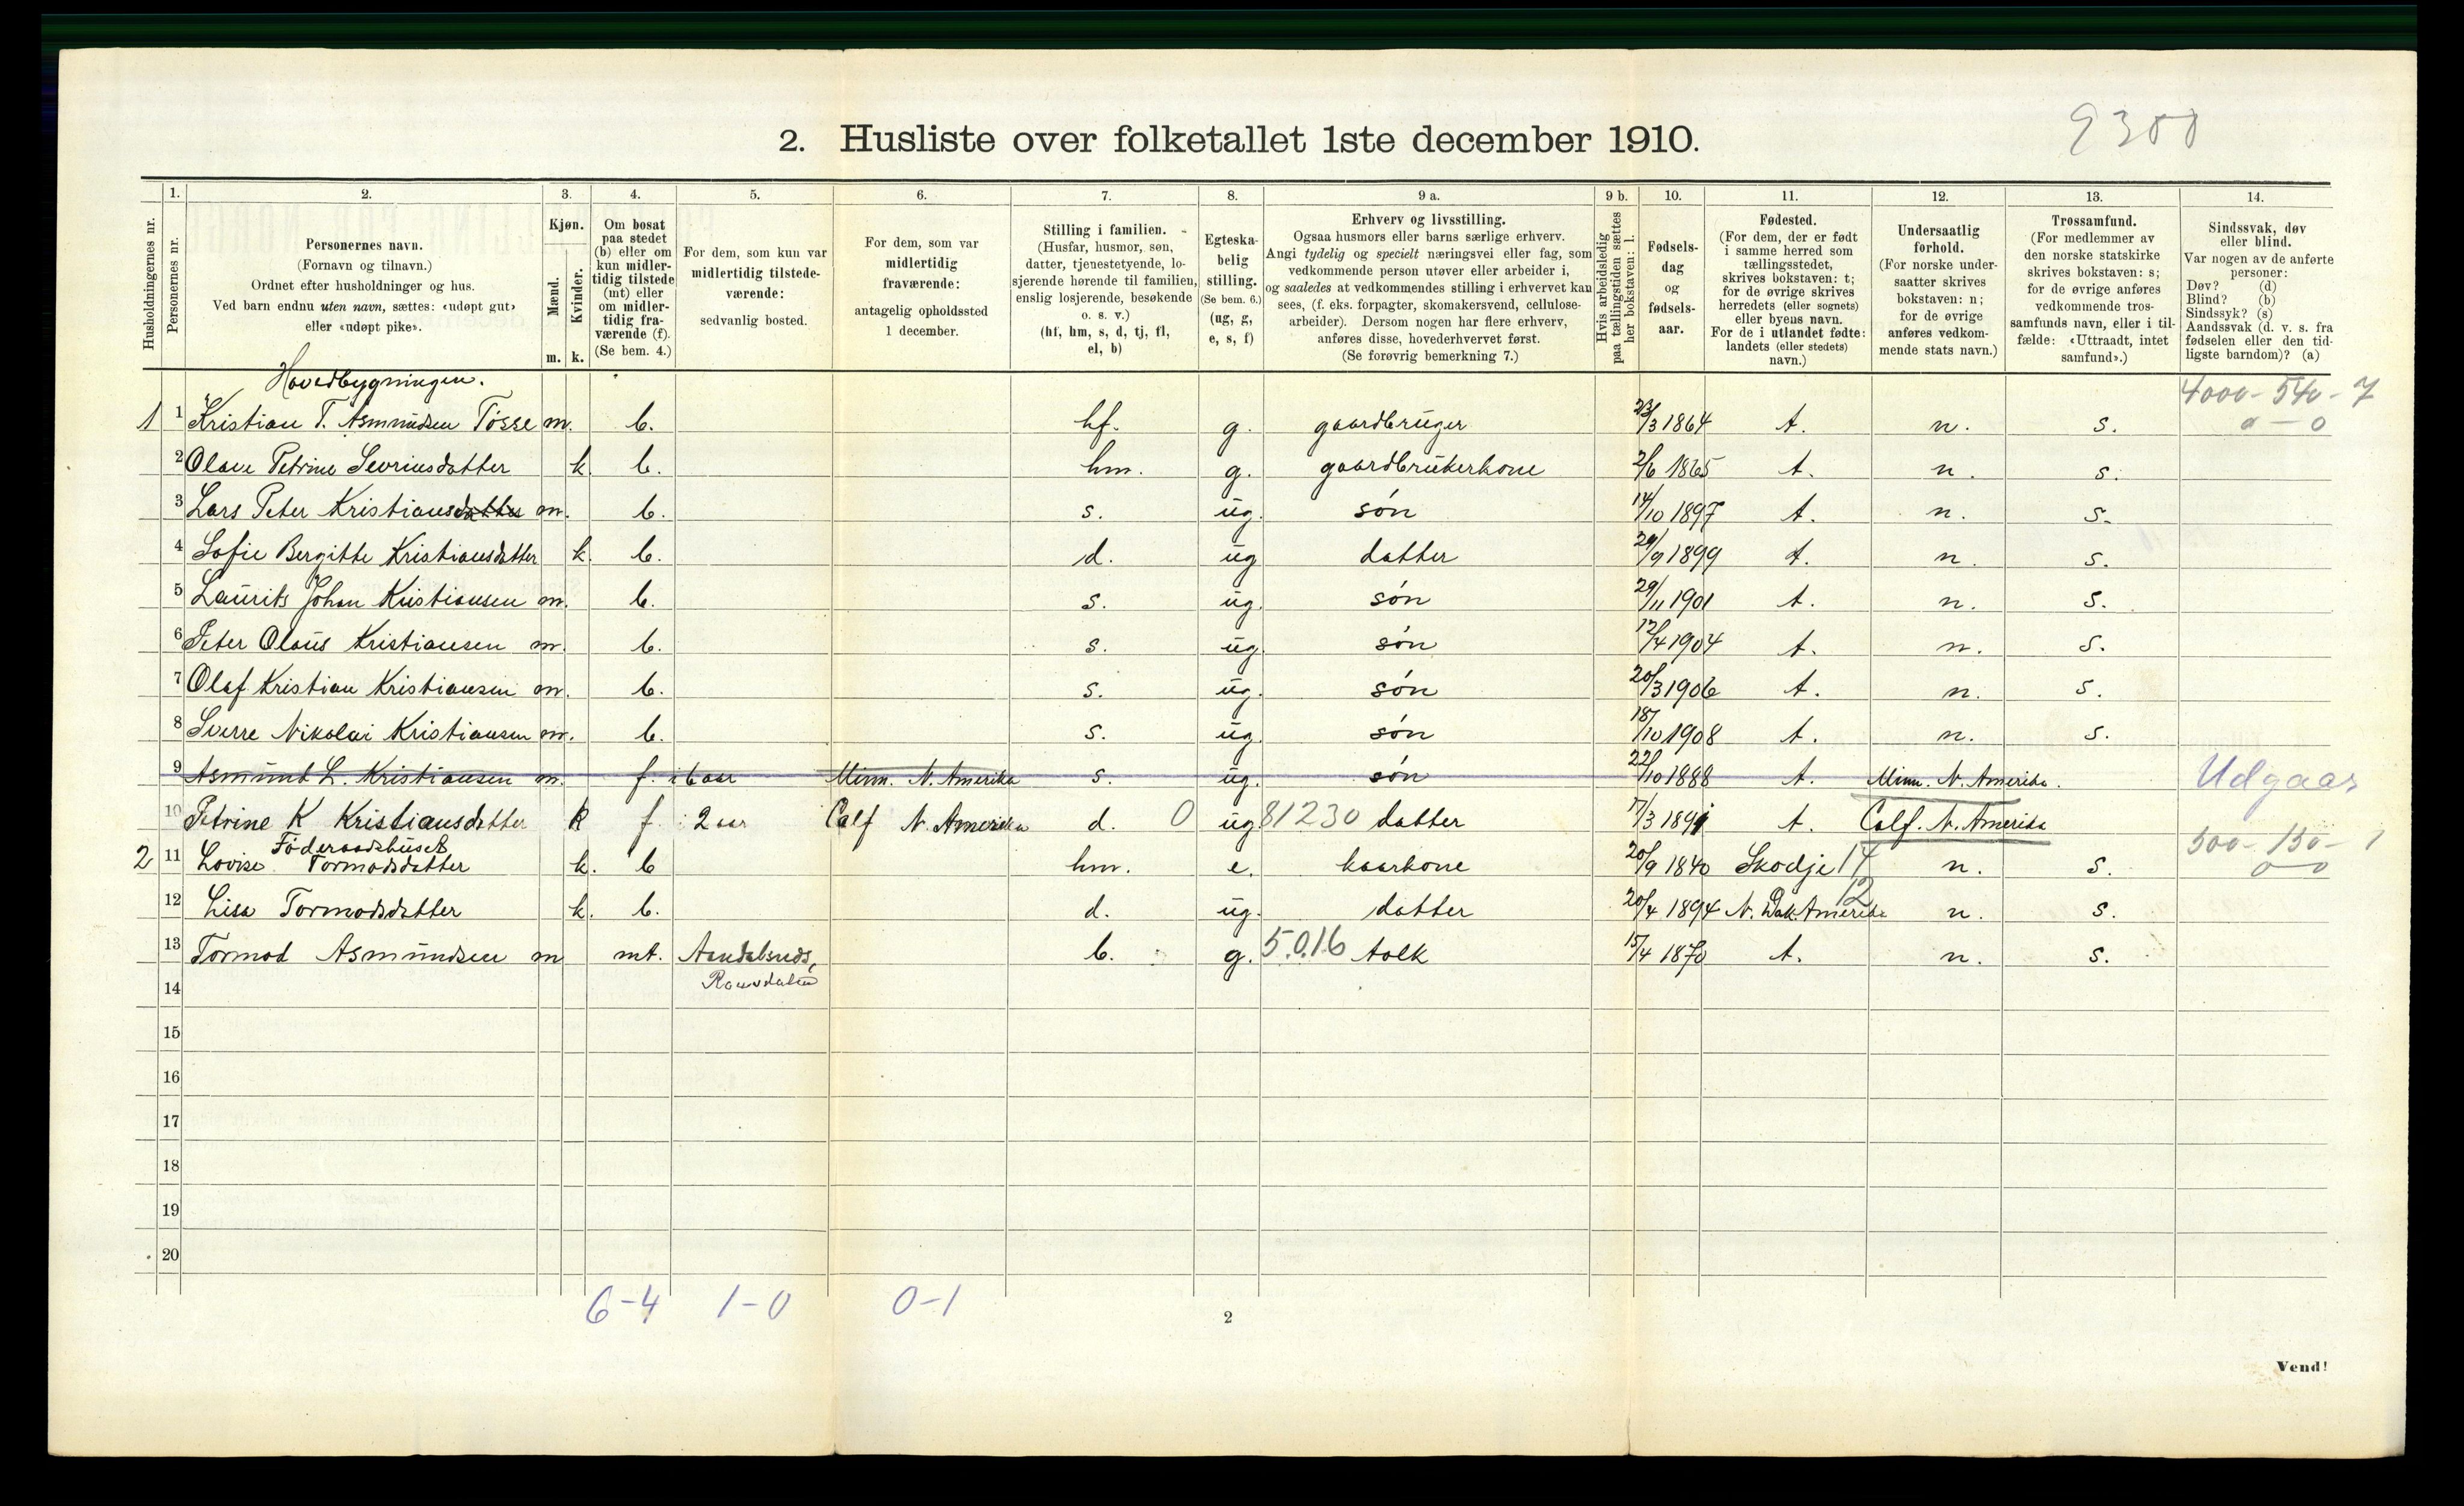 9300
2. Husliste over folketallet 1ste december 1910.
1. 2. 3. 4. 5. 6. 7. 8. 9 a. 9 b. 10. 11. 12. 13. 14.
Husholdningernes nr.
Personernes nr.
Personernes navn.
(Fornavn og tilnavn.)
Ordnet efter husholdninger og hus.
Ved barn endnu uten navn, sættes: «udøpt gut»
eller «udøpt pike».
Kjøn.
Mænd.
Kvinder.
m. k.
Om bosat
paa stedet
(b) eller om
kun midler-
tidig tilstede
(mt) eller
om midler-
tidig fra-
værende (f).
(Se bem. 4.)
For dem, som kun var
midlertidig tilstede-
værende:
sedvanlig bosted.
For dem, som var
midlertidig
fraværende:
antagelig opholdssted
1 december.
Stilling i familien.
(Husfar, husmor, søn,
datter, tjenestetyende, lo-
sjerende hørende til familien,
enslig losjerende, besøkende
o. s. v.)
(hf, hm, s, d, tj, fl,
el, b)
Egteska-
belig
stilling.
(Se bem. 6.)
(ug, g,
e, s, f)
Erhverv og livsstilling.
Ogsaa husmors eller barns særlige erhverv.
Angi tydelig og specielt næringsvei eller fag, som
vedkommende person utøver eller arbeider i,
og saaledes at vedkommendes stilling i erhvervet kan
sees, (f. eks. forpagter, skomakersvend, cellulose-
arbeider). Dersom nogen har flere erhverv,
anføres disse, hovederhvervet først.
(Se forøvrig bemerkning 7.)
Hvis arbeidsledig
paa tællingstiden sættes
her bokstaven: l.
Fødsels-
dag
og
fødsels-
aar.
Fødested.
(For dem, der er født
i samme herred som
tællingsstedet,
skrives bokstaven: t;
for de øvrige skrives
herredets (eller sognets)
eller byens navn.
For de i utlandet fødte:
landets (eller stedets)
navn.)
Undersaatlig
forhold.
(For norske under-
saatter skrives
bokstaven: n;
for de øvrige
anføres vedkom-
mende stats navn.)
Trossamfund.
(For medlemmer av
den norske statskirke
skrives bokstaven: s;
for de øvrige anføres
vedkommende tros-
samfunds navn, eller i til-
fælde: «Uttraadt, intet
samfund».)
Sindssvak, døv
eller blind.
Var nogen av de anførte
personer:
Døv? (d)
Blind? (b)
Sindssyk? (s)
Aandssvak (d. v. s. fra
fødselen eller den tid-
ligste barndom)? (a)
Hovedbygningen.
4000 - 540 - 7
1 1 Kristian T. Asmundsen Tösse m. b. hf. g. gaardbruger 23/3 1864 t. n. s. 0 - 0
2 Olave Petrine Sevrinsdatter k. b. hm. g. gaardbrukerkone 2/6 1865 t. n. s.
3 Lars Peter Kristiansdatter m. b. s. ug. søn 14/10 1897 t. n. s.
4 Sofie Bergitte Kristiansdatter k. b. d. ug datter 29/9 1899 t. n. s.
5 Laurits Johan Kristiansen m. b. s. ug. søn 29/11 1901 t. n. s.
6 Peter Olaus Kristiansen m. b. s. ug. søn 12/4 1904 t. n. s.
7 Olaf Kristian Kristiansen m. b. s. ug. søn 20/3 1906 t. n. s.
8 Sverre Nikolai Kristiansen m. b. s. ug. søn 18/10 1908 t. n. s.
9 Asmund L. Kristiansen m. f. i 6 aar Minn. N. Amerika s. ug. søn 22/10 1888 t. Minn. N. Amerika. Udgaar
10 Petrine K Kristiansdatter k f. 2 aar Calf N. Amerika d. 0 ug 81230 datter 17/3 1891 t. Calf. N. Amerika
Föderaadshuset
300 - 150 - 1
2 11 Lovise Tormodsdatter k. b hm. e. kaarkone 20/9 1840 Skodje 14 n. s. 0 - 0
12 Lisa Tormodsdatter k. b. d. ug. datter 20/4 1894 N. Dak. Amerika 12 n. s.
13 Tormod Asmundsen m mt. Aandalsnes, b. g. 5.016 tolk 15/4 1870 t. n. s.
Romsdalen
14
15
16
17
18
19
20
6-4 1-0 0-1
2
Vend!